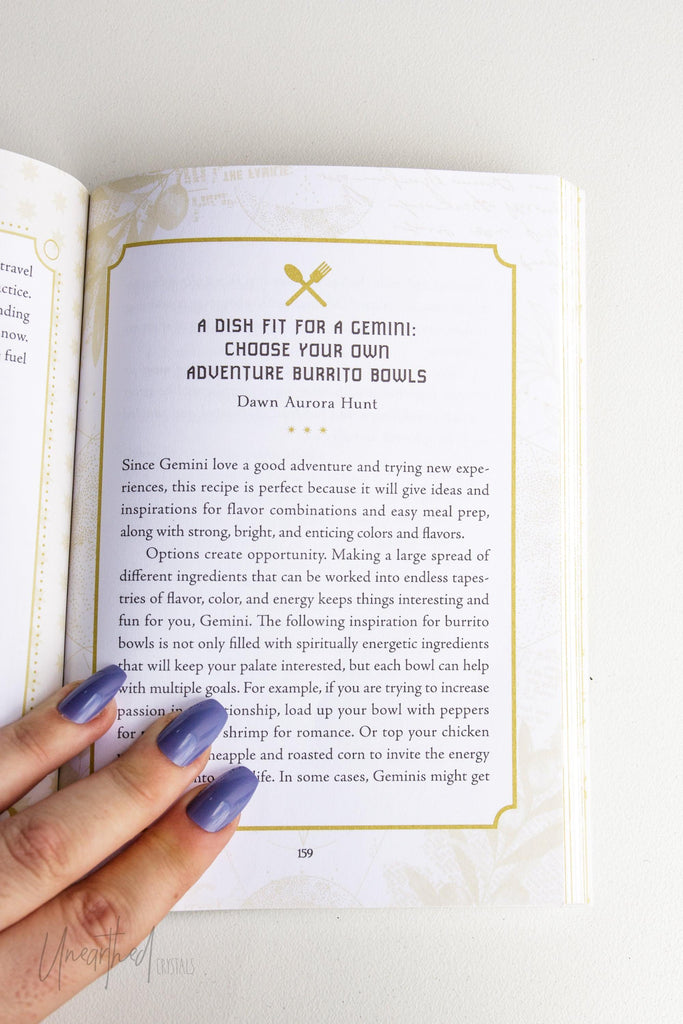 travel
ctice.
nding
now.
fuel
THE FAMILIE
A DISH FIT FOR A GEMINI:
CHOOSE YOUR OWN
ADVENTURE BURRITO BOWLS
Dawn Aurora Hunt
Since Gemini love a good adventure and trying new expe-
riences, this recipe is perfect because it will give ideas and
inspirations for flavor combinations and easy meal prep,
along with strong, bright, and enticing colors and flavors.
Options create opportunity. Making a large spread of
different ingredients that can be worked into endless tapes-
tries of flavor, color, and energy keeps things interesting and
fun for you, Gemini. The following inspiration for burrito
bowls is not only filled with spiritually energetic ingredients
that will keep your palate interested, but each bowl can help
with multiple goals. For example, if you are trying to increase
passion in tionship, load up your bowl with peppers
for shrimp for romance. Or top your chicken
neapple and roasted corn to invite the energy
into life. In some cases, Geminis might get
159
Unearthed
CRYSTALS